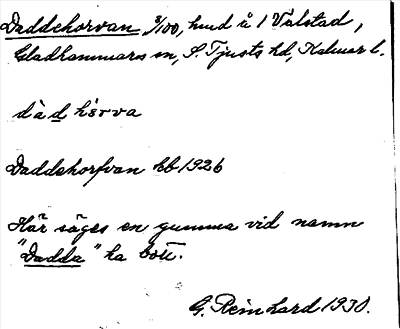 Daddehorvan, 8/100, hmd å 1 Vålstad,
Gladhammars sn, S. Tjusts hd, Kalmar l.
dàdhę́rva
Daddehorfvan kb 1926
Här säges en gumma vid namn
"Dadda" ha bott.
G. Reinhard 1930.